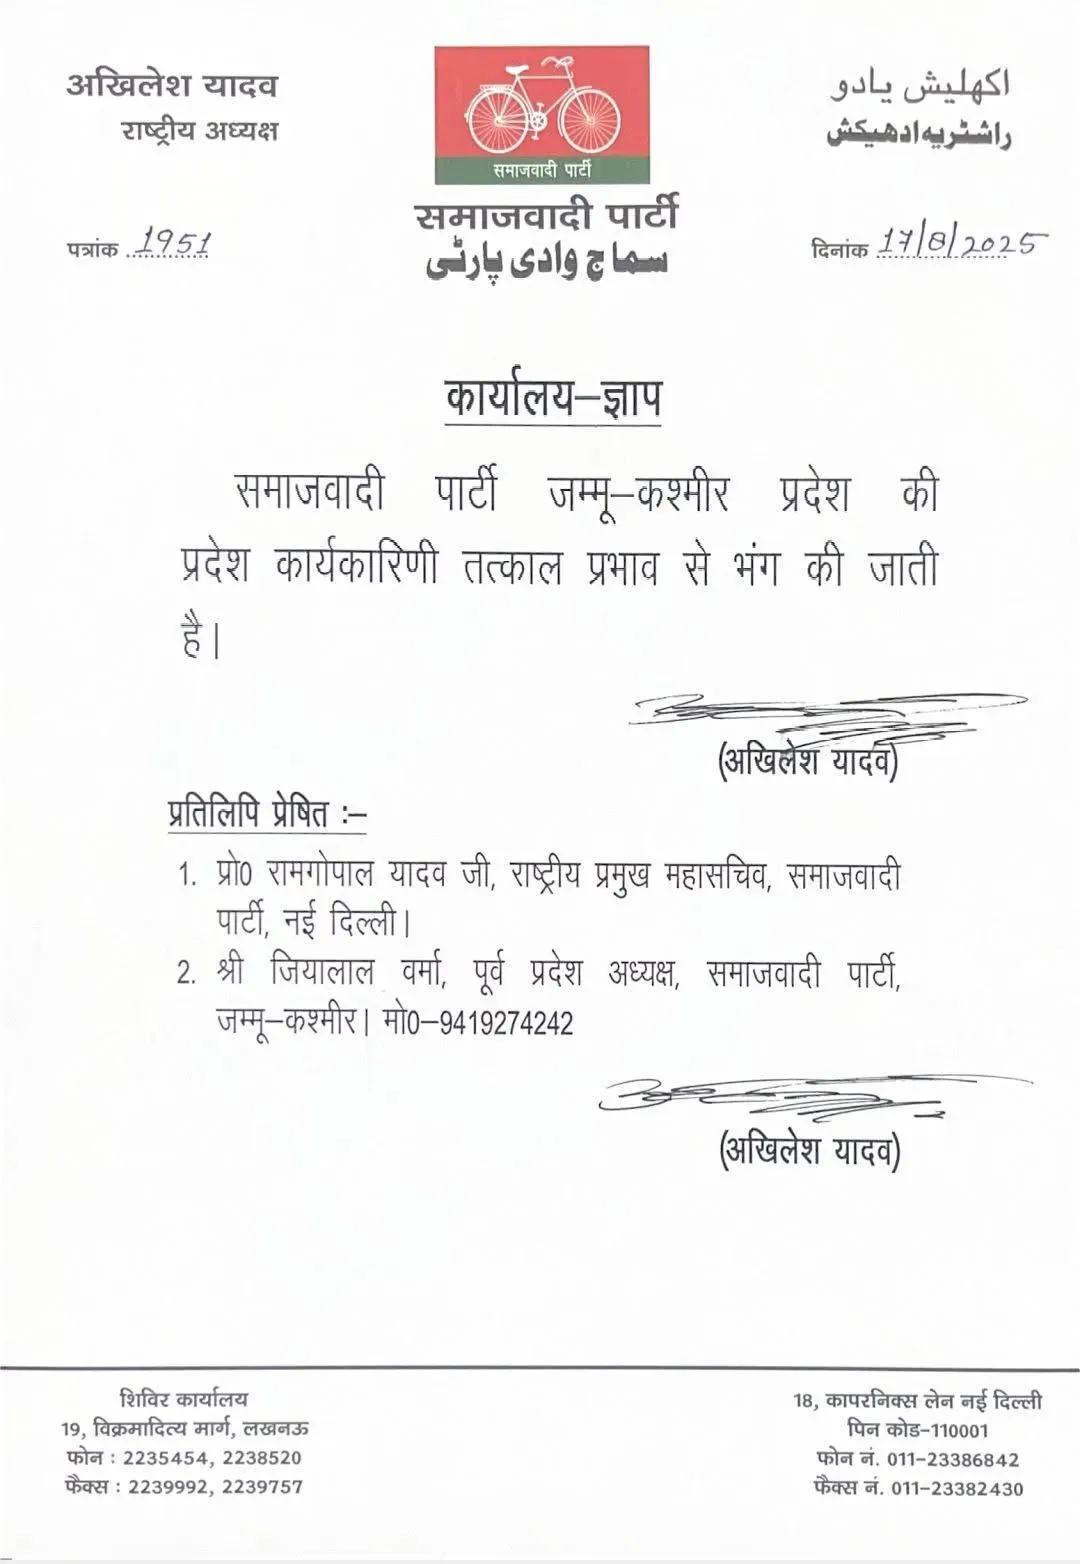 अखिलेश यादव
राष्ट्रीय अध्यक्ष
समाजवादी पार्टी
اکھلیش یادو
راشٹریہ ادھیکش
समाजवादी पार्टी
سماج وادی پارٹی
पत्रांक 1951
दिनांक 17/8/2025
कार्यालय–ज्ञाप
समाजवादी पार्टी जम्मू–कश्मीर प्रदेश की
प्रदेश कार्यकारिणी तत्काल प्रभाव से भंग की जाती
है।
(अखिलेश यादव)
प्रतिलिपि प्रेषित :–
1. प्रो0 रामगोपाल यादव जी, राष्ट्रीय प्रमुख महासचिव, समाजवादी
पार्टी, नई दिल्ली।
2. श्री जियालाल वर्मा, पूर्व प्रदेश अध्यक्ष, समाजवादी पार्टी,
जम्मू–कश्मीर। मो0–9419274242
(अखिलेश यादव)
शिविर कार्यालय
19, विक्रमादित्य मार्ग, लखनऊ
फोन : 2235454, 2238520
फैक्स : 2239992, 2239757
18, कापरनिक्स लेन नई दिल्ली
पिन कोड–110001
फोन नं. 011–23386842
फैक्स नं. 011–23382430